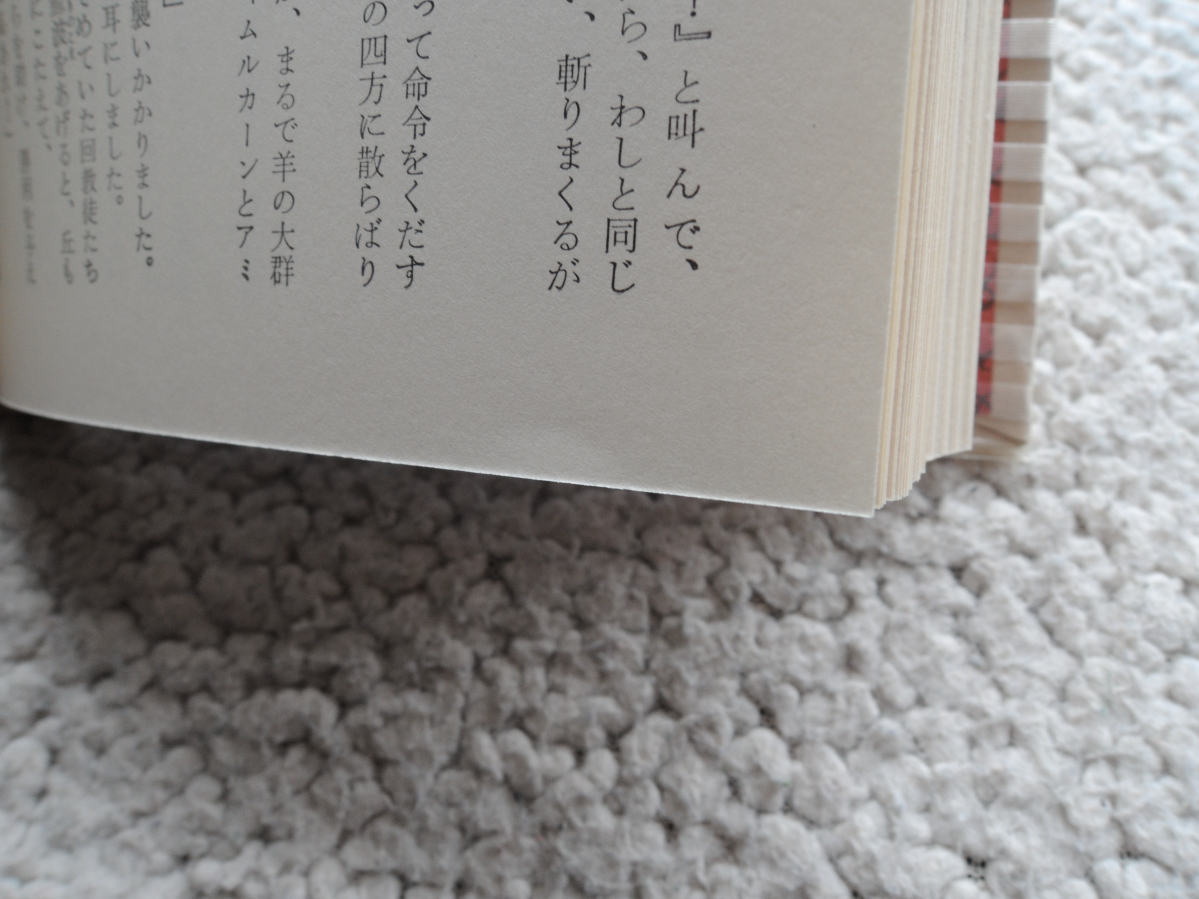 ！』と叫んで、
ら、わしと同じ
、斬りまくるが
って命令をくだす
の四方に散らばり
、まるで羊の大群
ムルカーンとアミ
』
襲いかかりました。
耳にしました。
めていた回教徒たち
をあげると、丘も